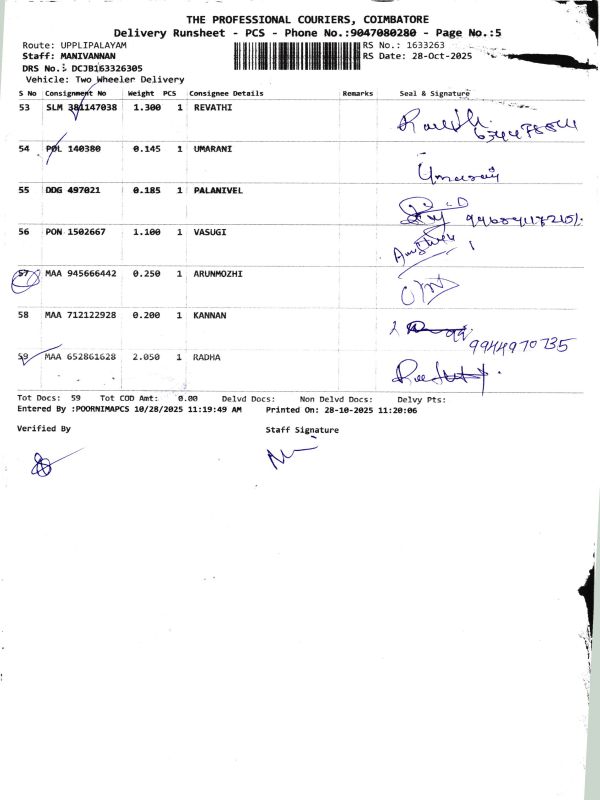 THE PROFESSIONAL COURIERS, COIMBATORE
Delivery Runsheet - PCS - Phone No.:9047080280 - Page No.:5
Route: UPPLIPALAYAM RS No.: 1633263
Staff: MANIVANNAN RS Date: 28-Oct-2025
DRS No.: DCJB163326305
Vehicle: Two Wheeler Delivery
S No Consignment No Weight PCS Consignee Details Remarks Seal & Signature
53 SLM 381147038 1.300 1 REVATHI
54 POL 140380 0.145 1 UMARANI
Umarani
55 DDG 497021 0.185 1 PALANIVEL
56 PON 1502667 1.100 1 VASUGI
57 MAA 945666442 0.250 1 ARUNMOZHI
58 MAA 712122928 0.200 1 KANNAN
9944970735
59 MAA 652861628 2.050 1 RADHA
Tot Docs: 59 Tot COD Amt: 0.00 Delvd Docs: Non Delvd Docs: Delvy Pts:
Entered By :POORNIMAPCS 10/28/2025 11:19:49 AM Printed On: 28-10-2025 11:20:06
Verified By Staff Signature